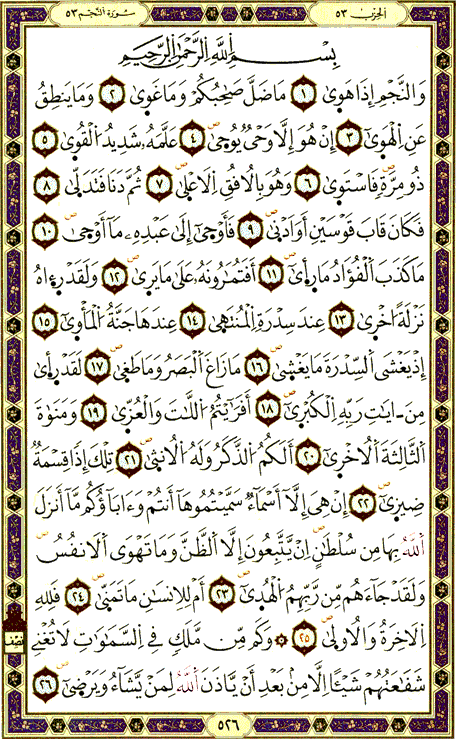 الحِزْب ٥٣
سُورَة النَّجْم ٥٣
بِسْمِ اللَّهِ الرَّحْمَٰنِ الرَّحِيمِ
وَالنَّجْمِ إِذَا هَوِىٰ ١ مَا ضَلَّ صَٰحِبُكُمْ وَمَا غَوِىٰ ٢ وَمَا يَنطِقُ
عَنِ اِ۬لْهَوِىٰٓ ٣ إِنْ هُوَ إِلَّا وَحْيٌ يُوحِىٰ ٤ عَلَّمَهُۥ شَدِيدُ اُ۬لْقُوِىٰ ٥
ذُو مِرَّةٖ فَاسْتَوِىٰ ٦ وَهُوَ بِالُافُقِ اِ۬لَاعْلِىٰ ٧ ثُمَّ دَنَا فَتَدَلِّىٰ ٨
فَكَانَ قَابَ قَوْسَيْنِ أَوَ اَدْنِىٰ ٩ فَأَوْحِىٰٓ إِلَىٰ عَبْدِهِۦ مَآ أَوْحِىٰ ١٠
مَا كَذَبَ اَ۬لْفُؤَادُ مَا رَأِىٰٓ ١١ أَفَتُمَٰرُونَهُۥ عَلَىٰ مَا يَرِىٰ ١٢ وَلَقَدْ رِءِاهُ
نَزْلَةً اُخْرِىٰ ١٣ عِندَ سِدْرَةِ اِ۬لْمُنتَهِىٰ ١٤ عِندَهَا جَنَّةُ اُ۬لْمَأْوِىٰٓ ١٥
إِذْ يَغْشَى اَ۬لسِّدْرَةَ مَا يَغْشِىٰ ١٦ مَا زَاغَ اَ۬لْبَصَرُ وَمَا طَغِىٰ ١٧ لَقَدْ رَأِىٰ
مِنَ اٰيَٰتِ رَبِّهِ اِ۬لْكُبْرِىٰٓ ١٨ أَفَرَٰٓيْتُمُ اُ۬للَّٰتَ وَالْعُزِّىٰ ١٩ وَمَنَوٰةَ
اَ۬لثَّالِثَةَ اَ۬لُاخْرِىٰٓ ٢٠ أَلَكُمُ اُ۬لذَّكَرُ وَلَهُ اُ۬لُانثِىٰ ٢١ تِلْكَ إِذاٗ قِسْمَةٞ
ضِيزِىٰٓ ٢٢ إِنْ هِيَ إِلَّآ أَسْمَآءٞ سَمَّيْتُمُوهَآ أَنتُمْ وَءَابَآؤُكُم مَّآ أَنزَلَ
اَ۬للَّهُ بِهَا مِن سُلْطَٰنٍ اِنْ يَّتَّبِعُونَ إِلَّا اَ۬لظَّنَّ وَمَا تَهْوَى اَ۬لَانفُسُ
وَلَقَدْ جَآءَهُم مِّن رَّبِّهِمُ اُ۬لْهُدِىٰٓ ٢٣ أَمْ لِلِانسَٰنِ مَا تَمَنِّىٰ ٢٤ فَلِلهِ
اِ۬لَاخِرَةُ وَالُاولِىٰ ٢٥ ۞ وَكَم مِّن مَّلَكٖ فِي اِ۬لسَّمَٰوَٰتِ لَا تُغْنِي
شَفَٰعَتُهُمْ شَيْـًٔا اِلَّا مِنۢ بَعْدِ أَنْ يَّاذَنَ اَ۬للَّهُ لِمَنْ يَّشَآءُ وَيَرْضِىٰٓ ٢٦
نصف
٥٢٦